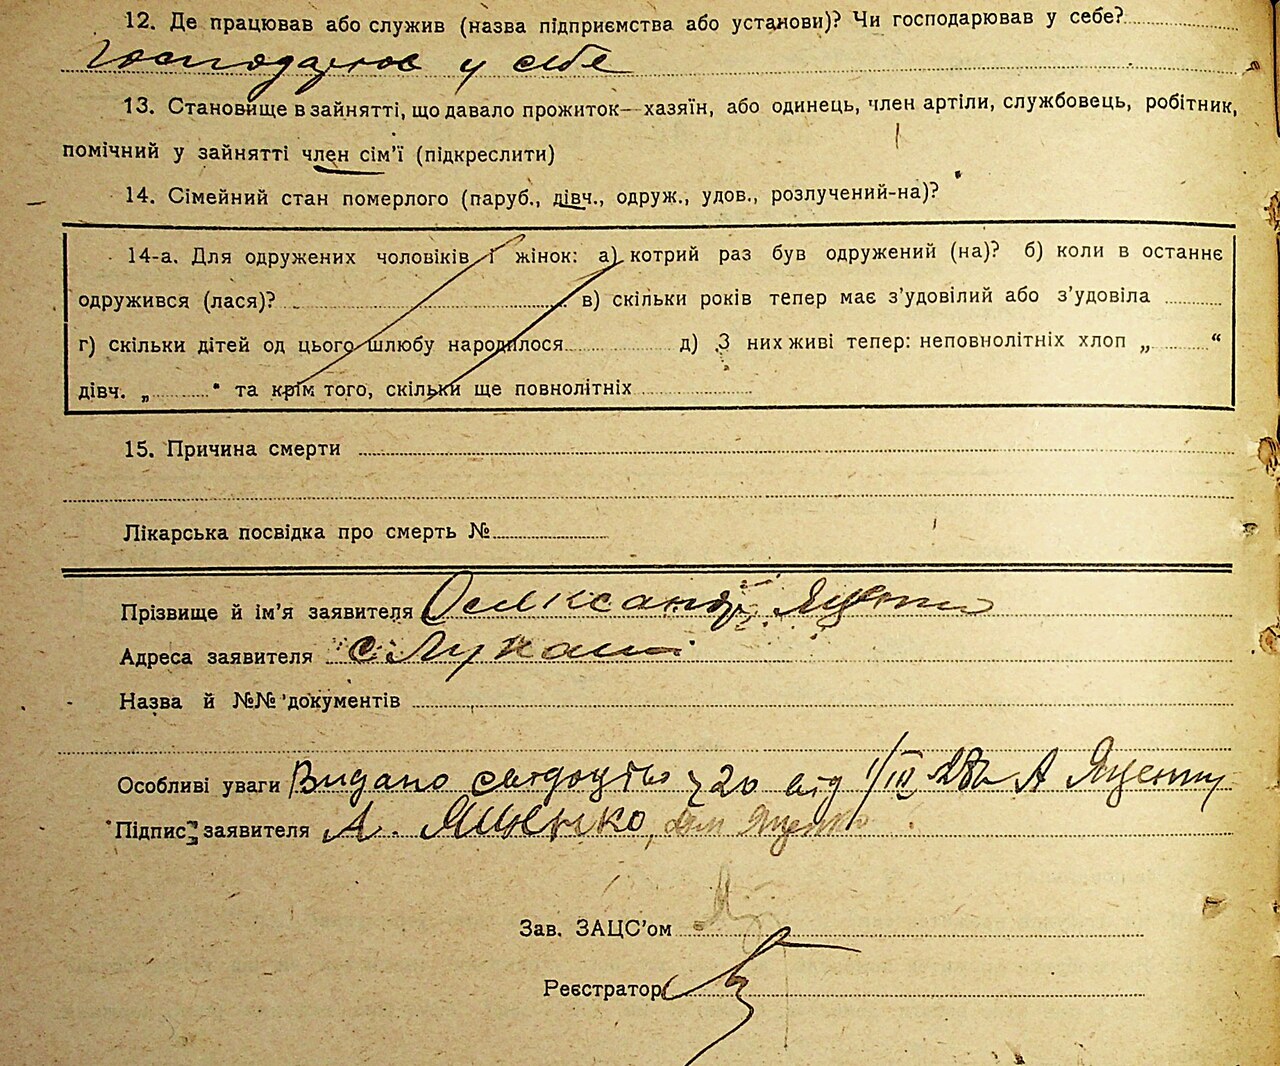 12. Де працював або служив (назва підприємства або установи)? Чи господарював у себе?
Господарює у себе
13. Становище в зайнятті, що давало прожиток—хазяїн, або одинець, член артіли, службовець, робітник,
помічний у зайнятті член сім'ї (підкреслити)
14. Сімейний стан померлого (паруб., дівч., одруж., удов., розлучений-на)?
14-а. Для одружених чоловіків і жінок: а) котрий раз був одружений (на)? б) коли в останнє
одружився (лася)? в) скільки років тепер має з'удовілий або з'удовіла
г) скільки дітей од цього шлюбу народилося д) З них живі тепер: неповнолітніх хлоп „ “
дівч. „ “ та крім того, скільки ще повнолітніх
15. Причина смерти
Лікарська посвідка про смерть №
Прізвище й ім'я заявителя Олександр Яценко
Адреса заявителя с. Лукаші
Назва й №№ документів
Особливі уваги Видано свідоцтво 20 від 1/III 28 А Яценко
Підпис заявителя А. Яценко, Яценко
Зав. ЗАЦС'ом
Реєстратор